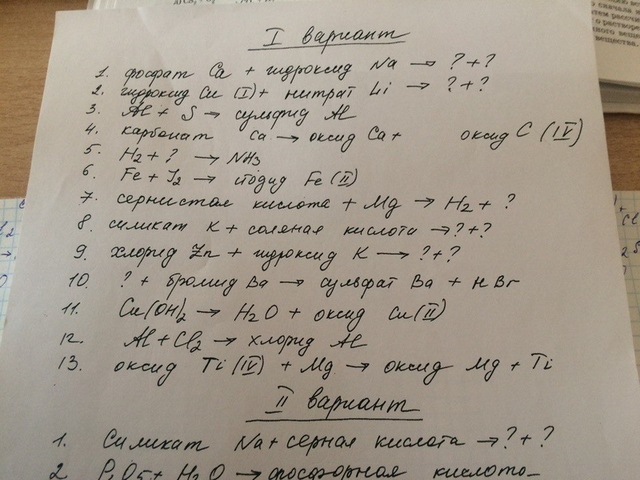 I вариант
1. фосфат Ca + гидроксид Na → ? + ?
2. гидроксид Cu (I) + нитрат Li → ? + ?
3. Al + S → сульфид Al
4. карбонат Ca → оксид Ca + оксид C (IV)
5. H2 + ? → NH3
6. Fe + I2 → иодид Fe (II)
7. сернистая кислота + Mg → H2 + ?
8. силикат K + соляная кислота → ? + ?
9. хлорид Zn + гидроксид K → ? + ?
10. ? + бромид Ba → сульфат Ba + HBr
11. Cu(OH)2 → H2O + оксид Cu (II)
12. Al + Cl2 → хлорид Al
13. оксид Ti (IV) + Mg → оксид Mg + Ti
II вариант
1. Силикат Na + серная кислота → ? + ?
2 P2O5 + H2O → фосфорная кислота